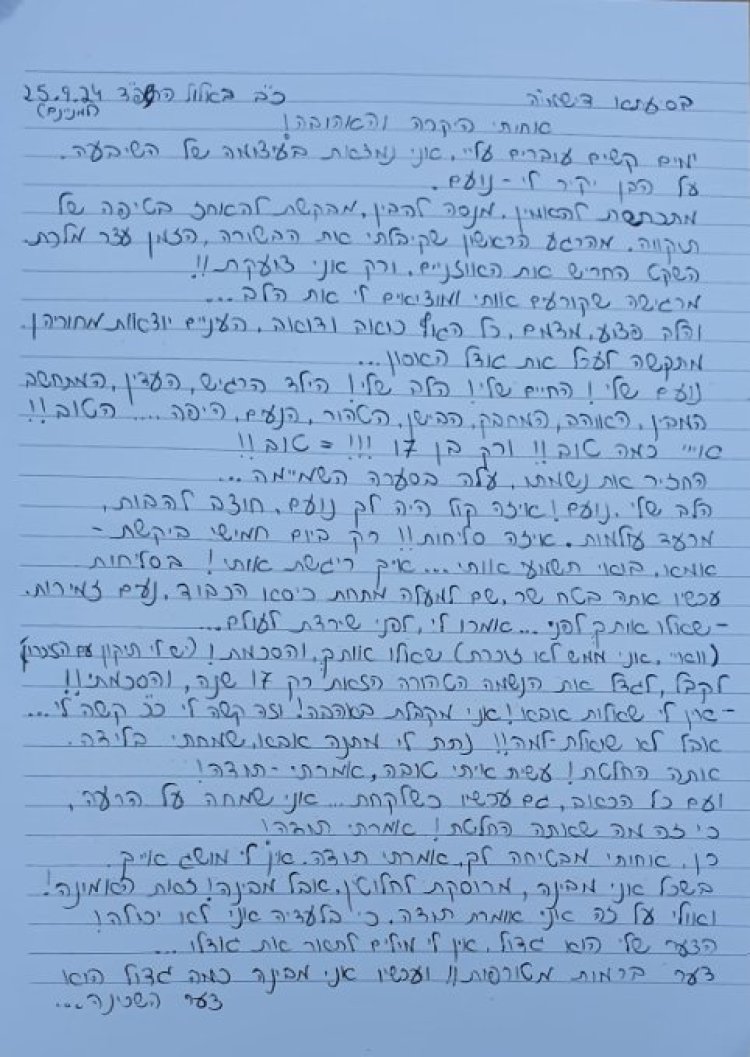 בסעתא דשמיא כ"ב באלול התשפ"ד 25.9.24
(למנינם)
אחותי היקרה והאהובה!
ימים קשים עוברים עליי. אני נמצאת בעיצומה של השיבעה.
על הבן יקיר לי - נועם.
מתכחשת להאמין. מנסה להבין. מבקשת להאחז בטיפה של
תיקווה. מהרגע הראשון שקיבלתי את הבשורה, הזמן עצר מלכת.
השקט החריש את האוזניים. ורק אני צועקת!!
מרגישה שקורעים אותי ומוציאים לי את הלב...
והלב פצוע, מדמם, כל הגוף כואב ודואב. העיניים יוצאות מחוריהן.
מתקשה לעכל את גודל האסון...
נועם שלי! החיים שלי! הלב שלי! הילד הרגיש, העדין, המתחשב
המבין, האוהב, המחבק, הביישן, הטהור, הנעים, היפה.... הטוב!!
אוייי כמה טוב!! ורק בן 17 !!! = טוב!!
החזיר את נשמתו, עלה בסערה השמיימה...
הלב שלי, נועם! איזה קול היה לך נועם. חוצב להבות,
מרעד עולמות. איזה סליחות!! רק ביום חמישי ביקשת -
אמא, בואי תשמעי אותי... איך ריגשת אותי! בסליחות
עכשיו אתה בטח שר, שם למעלה מתחת כיסא הכבוד, נעים זמירות.
- שאלו אותך לפני... אמרו לי, לפני שירדת לעולם...
(וואיי, אני ממש לא זוכרת) שאלו אותך, והסכמת! (יש לי תיקון עם הזכרון)
לקבל, לגדל את הנשמה הטהורה הזאת רק 17 שנה, והסכמתי!!
- אין לי שאלות אבא! אני מקבלת באהבה! וזה קשה לי כ"כ קשה לי...
אבל לא שואלת - למה!! נתת לי מתנה אבא, שמחתי בלידה.
אתה החלטת! עשית איתי טובה, אמרתי - תודה!
ועם כל הכאב, גם עכשיו כשלקחת... אני שמחה על הרעה,
כי זה מה שאתה החלטת! אמרתי תודה!
כן, אחותי מבטיחה לך, אמרתי תודה. אין לי מושג איך.
בשכל אני מבינה, מרוסקת לחלוטין, אבל מבינה! זאת האמונה!
ואולי על זה אני אומרת תודה, כי בלעדיה אני לא יכולה!
הצער שלי הוא גדול, אין לי מילים לתאר את גודלו...
צער ברמות מטורפות!! ועכשיו אני מבינה כמה גדול הוא
צער השכינה...